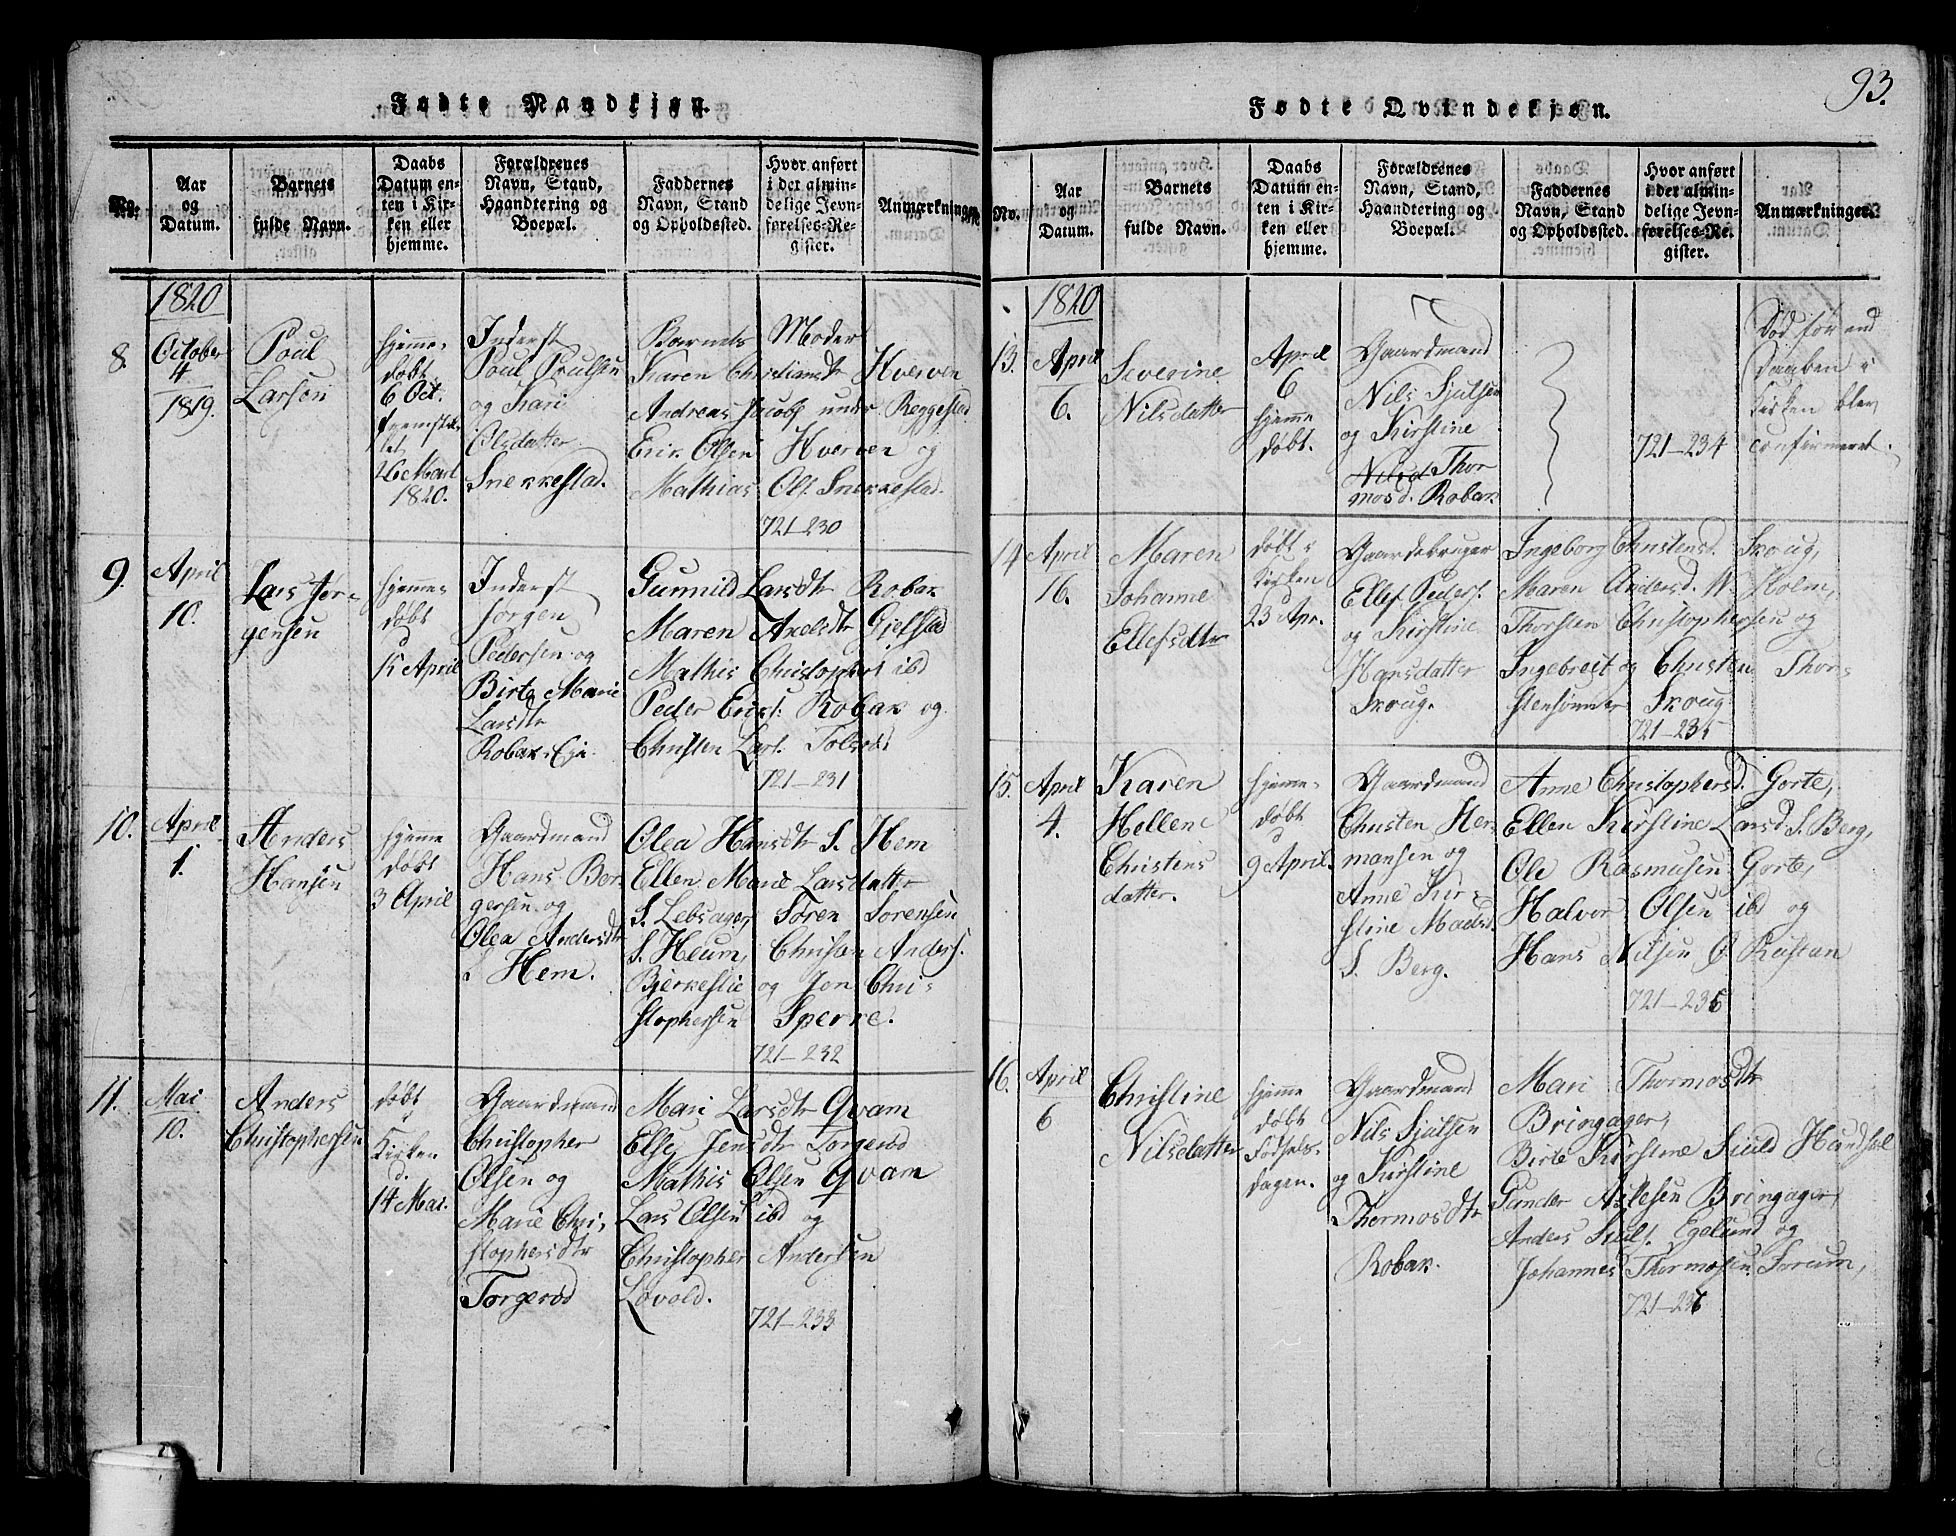 93.
Fødte Mandkiøn.
No.
Aar
og
Datum.
Barnets
fulde Navn.
Daabs
Datum en-
ten i Kir-
ken eller
hjemme.
Forældrenes
Navn, Stand,
Haandtering og
Boepæl.
Faddernes
Navn, Stand
og Opholdssted.
Hvor anført
i det almin-
delige Jevn-
førelses-Re-
gister.
Anmærkninger.
1820
8.
October
4
1819.
Poul
Larsen
hjemme-
døbt
6 Oct.
26 Mart
1820.
Inderst
Poul Poulsen
og Kari
Olsdatter
Snekkestad.
Barnets Moder
Karen Christiansdtr Hverven
Andreas Jacobs under Reggestad
Eric Olsen Hverven og
Mathias Ols. Snekkestad.
721-230
9.
April
10.
Lars Jør-
gensen
hjemme
døbt
15 April
Inderst
Jørgen
Pedersen og
Birte Marie
Larsdtr
Robak Eje.
Gunnild Larsdtr Robak
Maren Axelsdtr Gjefstad
Mathis Christophers ibd
Peder Erics. Robak og
Christen Lars. Tolsrød
721-231
10.
April
1.
Anders
Hansen
hjemme
døbt
3 April
Gaardmand
Hans Ber-
gersen og
Olea Andersdtr
S. Hem.
Olea Hansdtr S. Hem
Ellen Marie Larsdatter
S. Lebsager, Søren Sørensen
S. Heum, Christian Anders.
Bjerkeslie og Jon Chri-
stophersen Sperre.
721-232
11.
Mai
10.
Anders
Christophersen
døbt
i
Kirken
d.
14 Mai.
Gaardmand
Christopher
Olsen og
Marie Chri-
stophersdtr
Torgerød
Mari Larsdtr Qvam
Else Jensdtr Torgerød
Mathis Olsen Qvam
Lars Olsen ibd og
Christopher Andersen
Løvold.
721-233
Fødte Qvindekjøn.
No.
Aar
og
Datum.
Barnets
fulde Navn.
Daabs
Datum en-
ten i Kir-
ken eller
hjemme.
Forældrenes
Navn, Stand,
Haandtering og
Boepæl.
Faddernes
Navn, Stand
og Opholdssted.
Hvor anført
i det almin-
delige Jevn-
førelses-Re-
gister.
Anmærkninger.
1820
13.
April
6.
Severine
Nilsdatter
April
6
hjemme
døbt.
Gaardmand
Nils Sjulsen
og Kirstine
Nilsd Thor
mosd. Robak
721-234
Død før end
Daaben i
Kirken blev
confirmeret.
14
April
16.
Maren
Johanne
Ellefsdtr
døbt i
Kirken
23 Apr.
Gaardebruger
Ellef Peders.
og Kirstine
Hansdatter
Skoug.
Ingeborg Christensd. Skoug,
Maren Andersd. N. Holm,
Thorsten Christophersen og
Ingebret og Christen Thor-
stensønner Skoug
721-235
15.
April
4.
Karen
Hellene
Christens
datter.
hjemme-
døbt
9 April.
Gaardmand
Christen Her-
mansen og
Anne Kir-
stine Madsd.
S. Berg.
Anne Christophersd. Gorte,
Ellen Kirstine Larsd. S. Berg,
Ole Rasmusen Gorte,
Halvor Olsen ibd og
Hans Nilsen Ø. Rustan
721-236
16.
April
6
Christine
Nilsdatter
hjemme
døbt
Fødsels-
dagen.
Gaardmand
Nils Sjulsen
og Kirstine
Thormosdtr
Robak.
Mari Thormosdtr
Bringager,
Birte Kirstine Siuld Hundstal
Gunder Aslesen Bringager,
Anders Siuls. Egelund og
Johannes Thormosen Sorum,
721-237